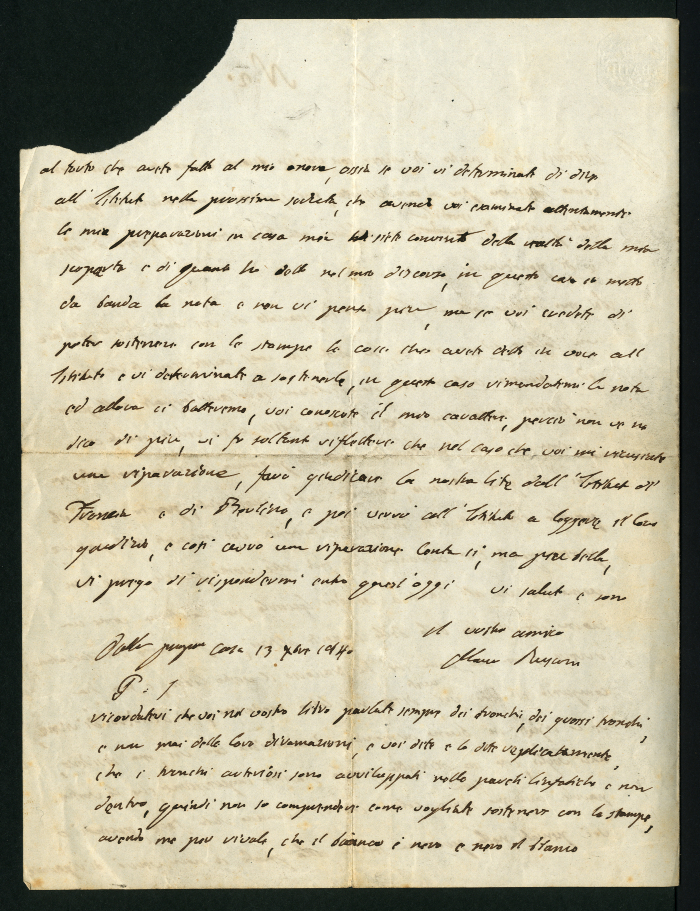 al torto che avete fatto al mio onore, ossia se voi vi determinate di dire
all' Istituto nella prossima seduta, che avendo voi esaminate attentamente
le mie preparazioni in casa mia siete convinto della realtà della mia
scoperta e di quanto ho detto nel mio discorso, in questo caso io metto
da banda la nota e non vi penso più, ma se voi credete di
poter sostenere con le stampe le cose che avete dette in voce all
Istituto e vi determinate a sostenerle, in questo caso rimandatemi la nota
ed allora ci batteremo, voi conoscete il mio carattere, perciò non ve ne
dico di più, vi fo soltanto riflettere che nel caso che voi mi ricusiate
una riparazione, farò giudicare la nostra lite dall' Istituto di
Francia e di Berlino, e poi verrò all' Istituto a leggere il loro
giudizio, e così avrò una riparazione ma più bella,
vi prego di rispondermi entro quest'oggi vi saluto e sono
il vostro amico
Mauro Rusconi
Dalla propria Casa 13 Xbre 1840
P. S
ricordatevi che voi nel vostro libro parlate sempre dei tronchi, dei grossi tronchi,
e non mai delle loro diramazioni, e voi dite e lo dite replicatamente,
che i tronchi arteriosi sono avviluppati nelle pareti linfatiche e non
dentro, quindi non so comprendere come vogliate sostenere con le stampe,
avendo me per rivale, che il bianco è nero e nero il bianco